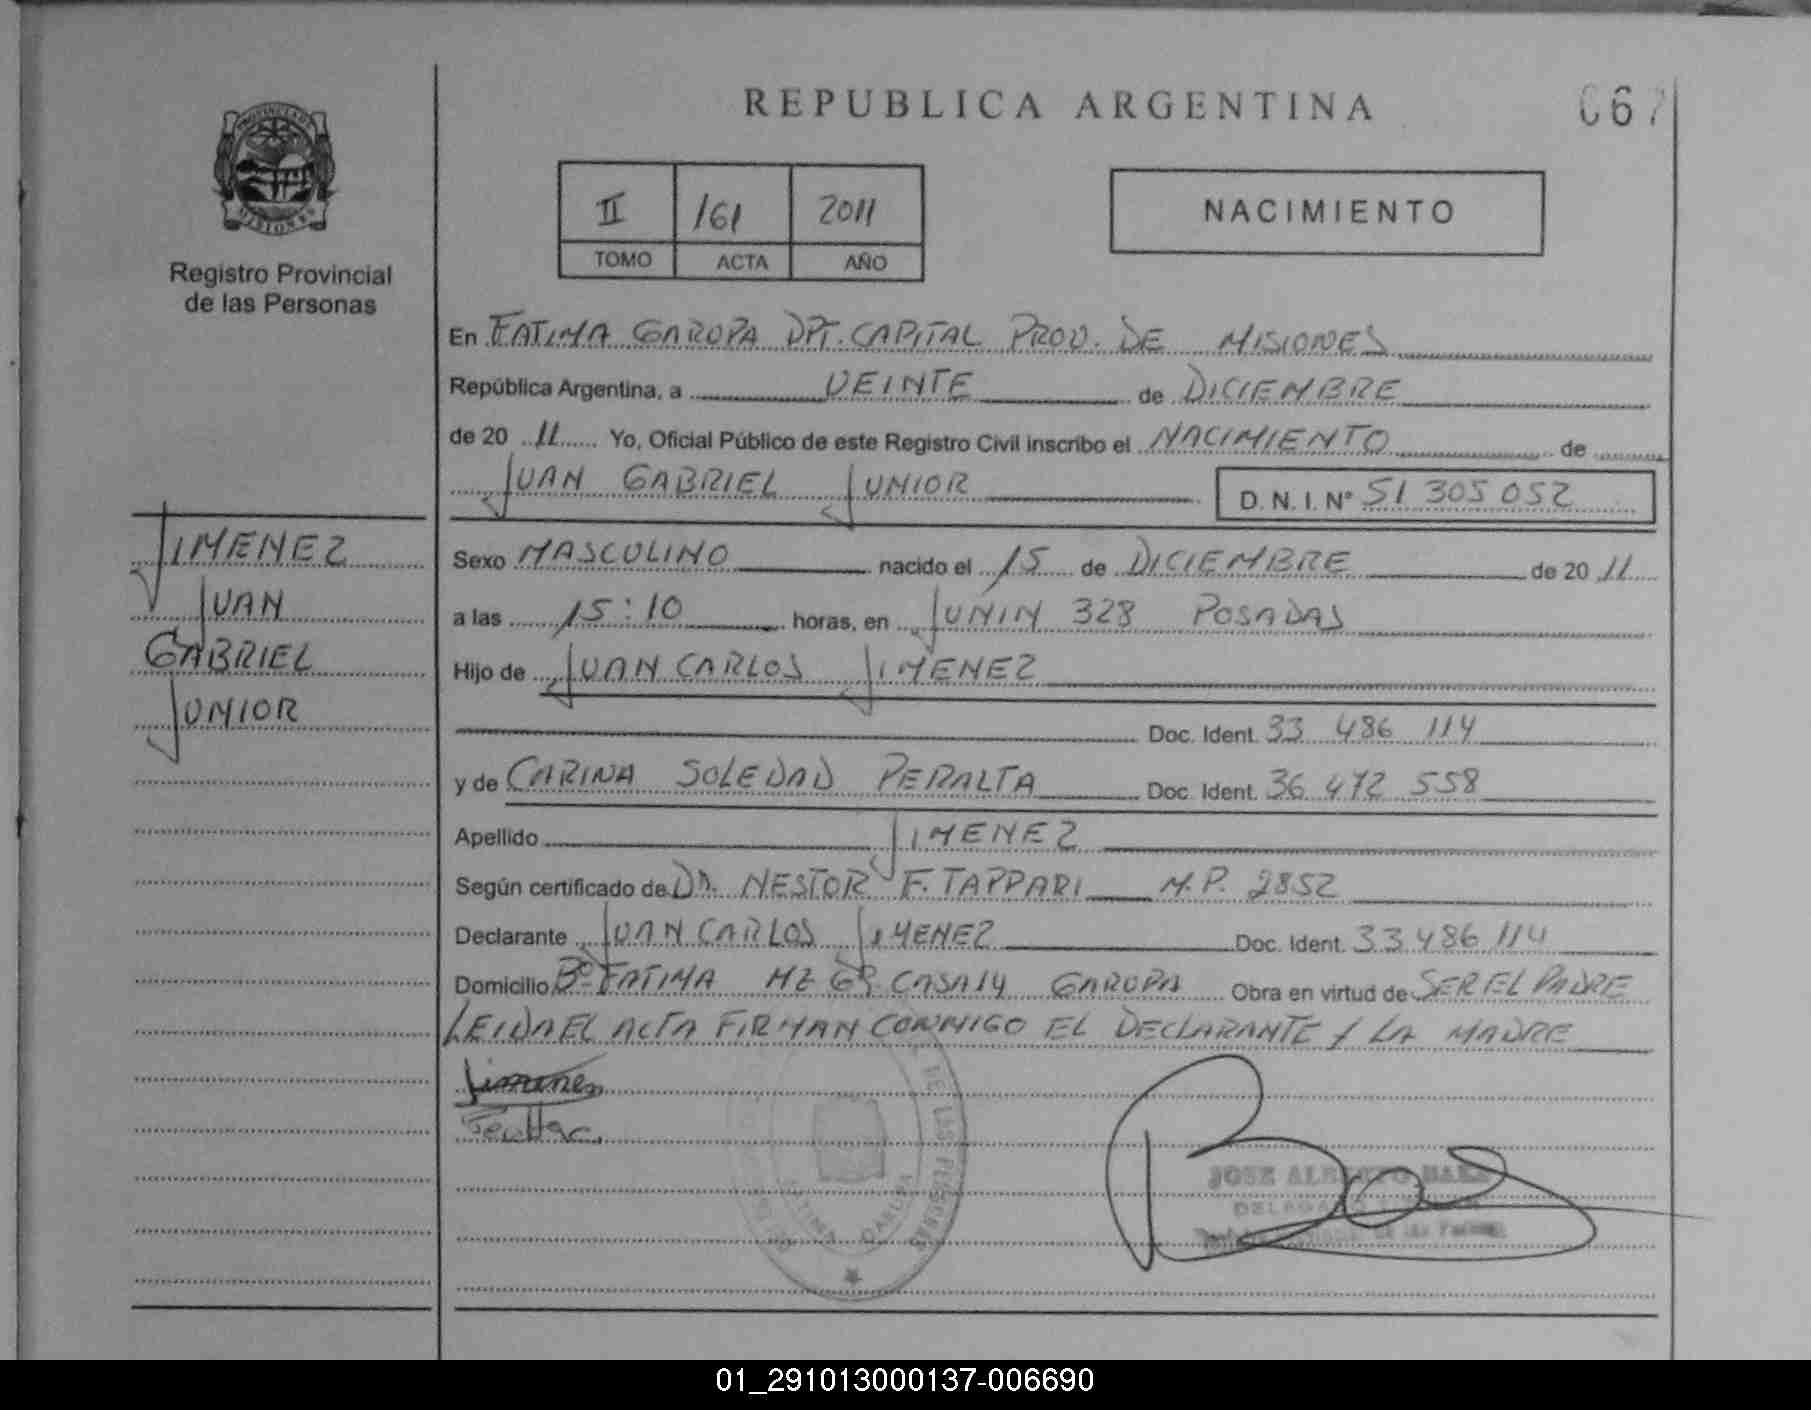 REPUBLICA ARGENTINA
067
PROVINCIA DE
MISIONES
Registro Provincial
de las Personas
II 161 2011
TOMO ACTA AÑO
NACIMIENTO
En FATIMA GAROPA DPT. CAPITAL PROV. DE MISIONES
República Argentina, a VEINTE de DICIEMBRE
de 20 11 Yo, Oficial Público de este Registro Civil inscribo el NACIMIENTO de
JUAN GABRIEL JUNIOR D.N.I. Nº 51 305 052
JIMENEZ
JUAN
GABRIEL
JUNIOR
Sexo MASCULINO nacido el 15 de DICIEMBRE de 20 11
a las 15:10 horas, en JUNIN 328 POSADAS
Hijo de JUAN CARLOS JIMENEZ
Doc. Ident. 33 486 114
y de CARINA SOLEDAD PERALTA Doc. Ident. 36 472 558
Apellido JIMENEZ
Según certificado de DR. NESTOR F. TAPPARI M.P. 2852
Declarante JUAN CARLOS JIMENEZ Doc. Ident. 33 486 114
Domicilio Bº FATIMA MZ 69 CASA 14 GAROPA Obra en virtud de SER EL PADRE
LEIDA EL ACTA FIRMAN CONMIGO EL DECLARANTE Y LA MADRE
Jimenez
DE LAS PERSONAS
JOSE ALBERTO BAEZ
DELEGADO
01_291013000137-006690